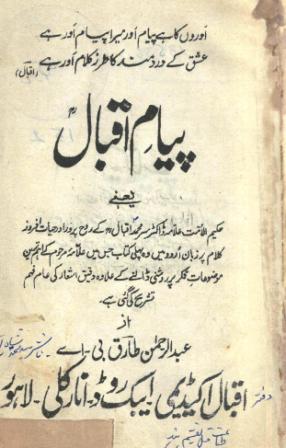 اوروں کا ہے پیام اور میرا پیام اور ہے
عشق کے درد مند کا طرز کلام اور ہے
(اقبال)
پیامِ اقبالؒ
یعنے
حکیم الامت علامہ ڈاکٹر سر محمد اقبالؒ کے روح پرور اور حیات افروز
کلام پر زبان اُردو میں وہ پہلی کتاب جس میں علامہ مرحوم کے اہم ترین
موضوعاتِ فکر پر روشنی ڈالنے کے علاوہ دقیق اشعار کی عام فہم
تشریح کی گئی ہے۔
از
عبدالرحمٰن طارق بی۔ اے
دفتر
اقبال اکیڈیمی۔ ایبک روڈ۔ انارکلی۔ لاہور